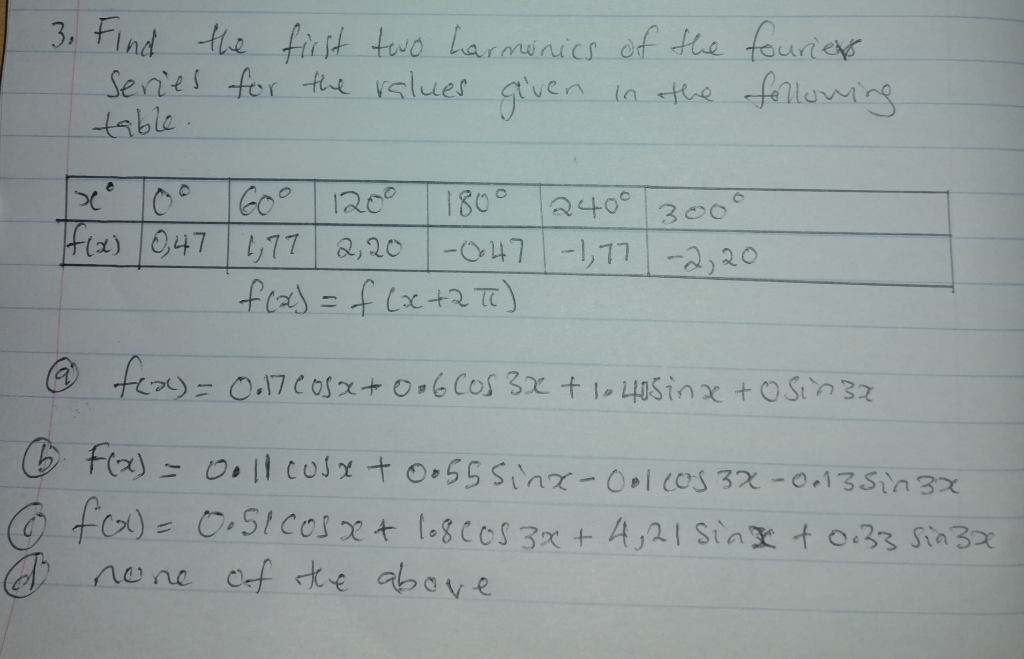 3. Find the first two harmonics of the fourier
series for the values given in the following
table.
x° 0° 60° 120° 180° 240° 300°
f(x) 0,47 1,77 2,20 -0.47 -1,77 -2,20
f(x) = f(x+2π)
(a) f(x) = 0.17 cosx + 0.6 cos 3x + 1.40 sinx + 0 sin3x
(b) f(x) = 0.11 cosx + 0.55 sinx - 0.1 cos 3x - 0.13 sin 3x
(c) f(x) = 0.51 cos x + 1.8 cos 3x + 4,21 sinx + 0.33 sin 3x
(d) none of the above